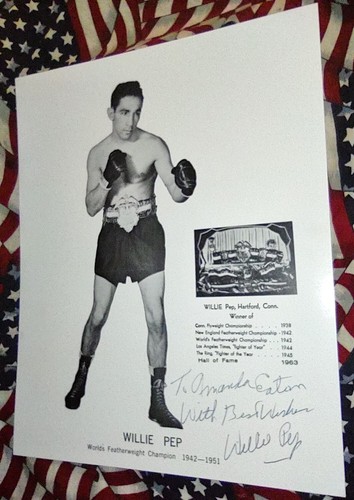 WILLIE Pep, Hartford, Conn.
Winner of
Conn. Flyweight Championship . . . . 1938
New England Featherweight Championship . 1942
World's Featherweight Championship . . 1942
Los Angeles Times, "Fighter of Year" . . . 1944
The Ring, "Fighter of the Year" . . . . 1945
Hall of Fame 1963
To Amanda Eaton
With Best Wishes
Willie Pep
WILLIE PEP
Worlds Featherweight Champion 1942—1951